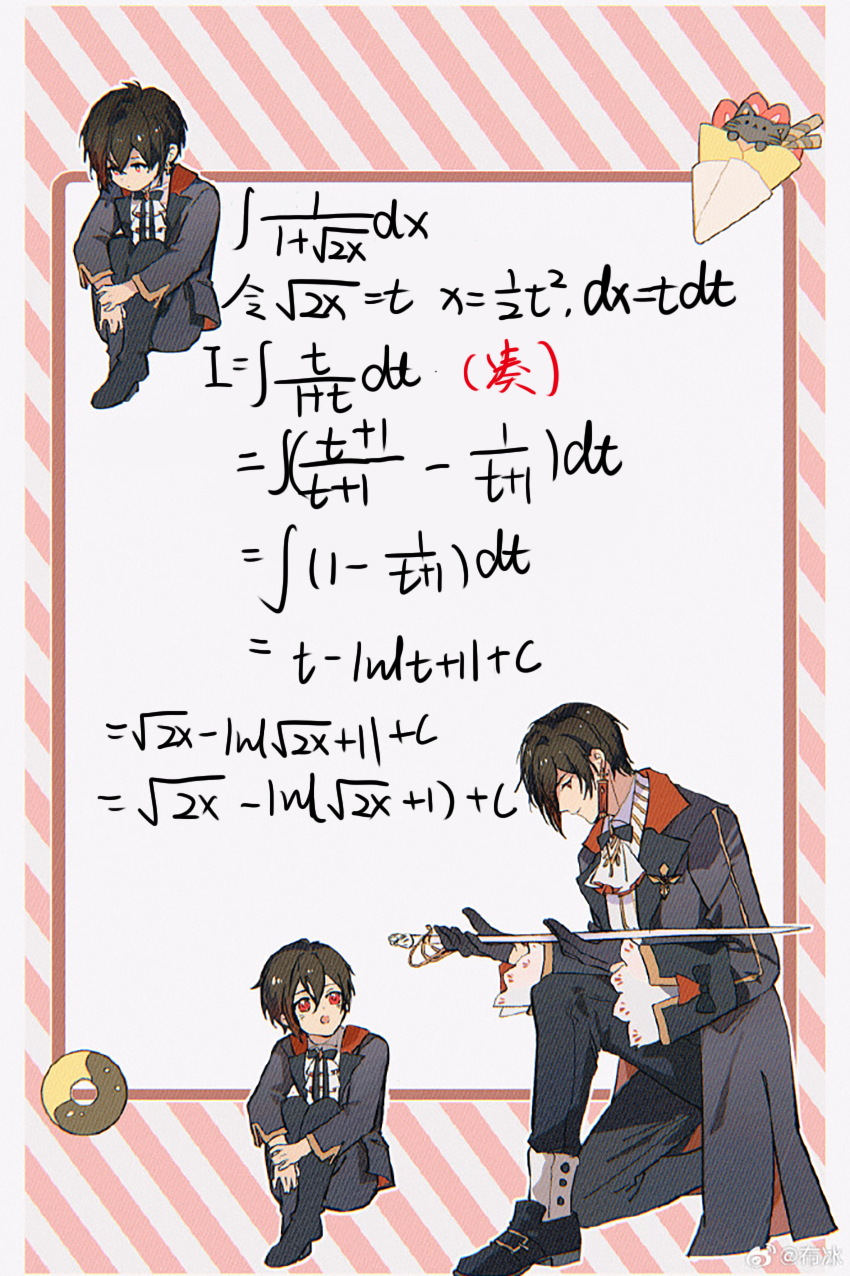 ∫ 1/(1+√2x) dx
令 √2x = t x = 1/2 t², dx = tdt
I = ∫ t/(1+t) dt (凑)
= ∫((t+1)/(t+1) - 1/(t+1))dt
= ∫(1 - 1/(t+1))dt
= t - ln|t+1| + C
= √2x - ln|√2x+1| + C
= √2x - ln(√2x+1) + C
@布冰